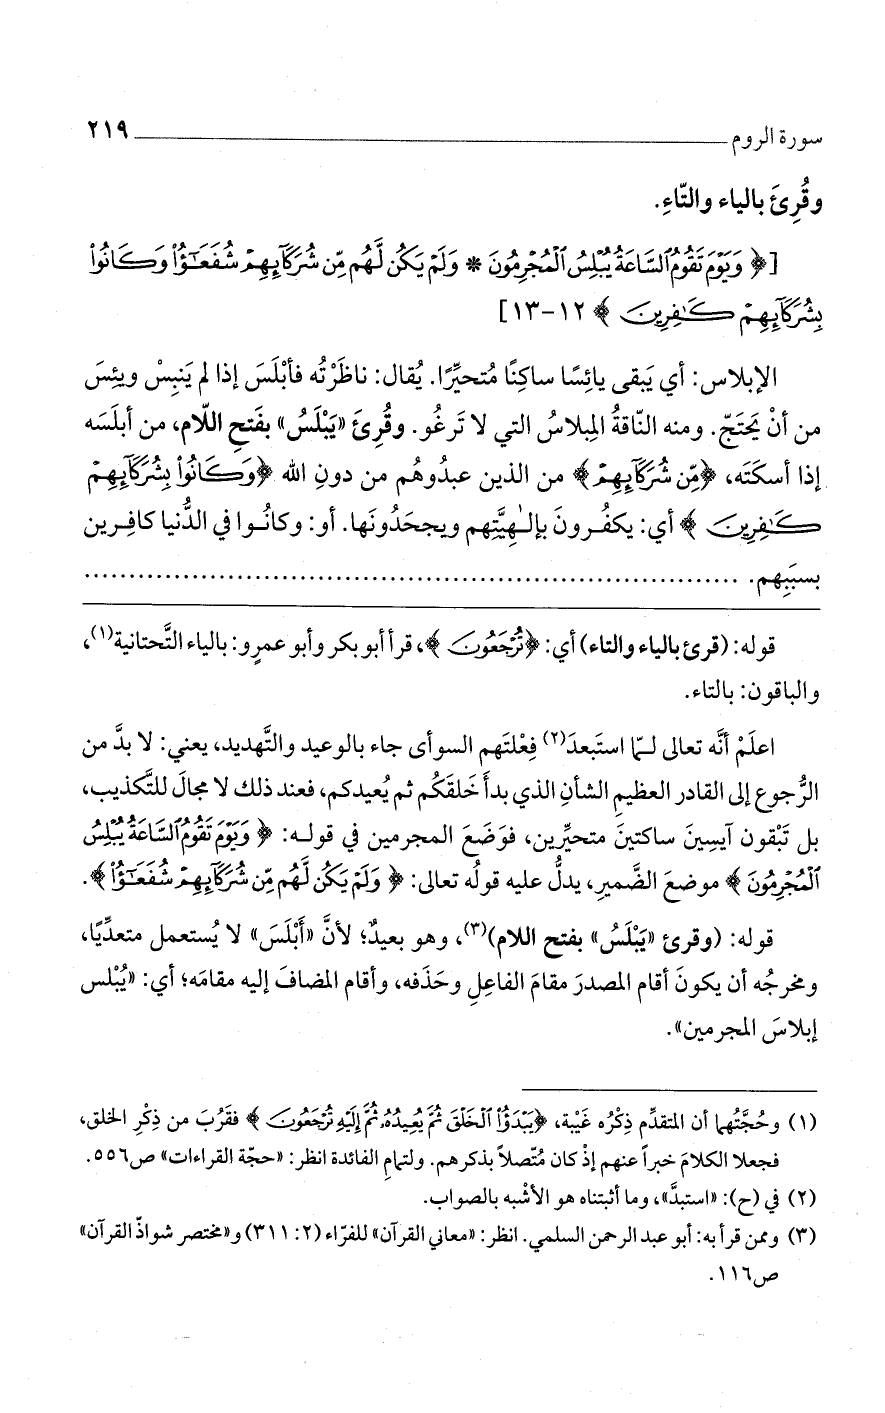 سورة الروم ٢١٩
وقُرِئَ بالياء والتّاءِ.
[﴿ وَيَوْمَ تَقُومُ ٱلسَّاعَةُ يُبْلِسُ ٱلْمُجْرِمُونَ * وَلَمْ يَكُن لَّهُم مِّن شُرَكَآئِهِمْ شُفَعَٰٓؤُاْ وَكَانُواْ
بِشُرَكَآئِهِمْ كَٰفِرِينَ ﴾ ١٢-١٣]
الإبلاس: أي يَبقى يائِسًا ساكِنًا مُتحيِّرًا. يُقال: ناظَرْتُه فأبْلَسَ إذا لم يَنبِسْ ويئِسَ
من أنْ يَحتَجّ. ومنه النّاقةُ المِبلاسُ التي لا تَرغُو. وقُرِئَ «يَبْلَسُ» بفَتحِ اللّام، من أبلَسَه
إذا أسكتَه، ﴿مِّن شُرَكَآئِهِمْ﴾ من الذين عبدُوهُم من دونِ الله ﴿وَكَانُواْ بِشُرَكَآئِهِمْ
كَٰفِرِينَ ﴾ أي: يكفُرونَ بإلٰهِيَّتِهم ويجحَدُونَها. أو: وكانُوا في الدُّنيا كافِرين
بسبَبِهم. ........................................................................
قوله: (قرئ بالياء والتاء) أي: ﴿تُرْجَعُونَ ﴾، قرأ أبو بكر وأبو عمرٍو: بالياء التَّحتانية(١)،
والباقون: بالتاء.
اعلَمْ أنَّه تعالى لـمّا استَبعدَ(٢) فِعْلتَهم السوأى جاء بالوعيد والتَّهديد، يعني: لا بدَّ من
الرُّجوع إلى القادر العظيمِ الشأنِ الذي بدأَ خَلقَكُم ثم يُعيدكم، فعند ذلك لا مجالَ للتَّكذيب،
بل تَبْقون آيسِينَ ساكتينَ متحيِّرين، فوَضَعَ المجرمين في قولـه: ﴿ وَيَوْمَ تَقُومُ ٱلسَّاعَةُ يُبْلِسُ
ٱلْمُجْرِمُونَ ﴾ موضعَ الضَّميرِ، يدلُّ عليه قولُه تعالى: ﴿ وَلَمْ يَكُن لَّهُم مِّن شُرَكَآئِهِمْ شُفَعَٰٓؤُاْ ﴾.
قوله: (وقرئ «يَبْلَسُ» بفتح اللام)(٣)، وهو بعيدٌ؛ لأنَّ «أَبْلَسَ» لا يُستعمل متعدِّيًا،
ومخرجُه أن يكونَ أقام المصدرَ مقامَ الفاعلِ وحَذَفه، وأقام المضافَ إليه مقامَه؛ أي: «يُبْلس
إبلاسَ المجرمين».
(١) وحُجَّتُهما أن المتقدِّم ذِكْرُه غَيبة، ﴿يَبْدَؤُاْ ٱلْخَلْقَ ثُمَّ يُعِيدُهُۥ ثُمَّ إِلَيْهِ تُرْجَعُونَ ﴾ فقَرُبَ من ذِكْرِ الخلق،
فجعلا الكلامَ خبراً عنهم إذْ كان مُتّصلاً بذكرهم. ولتمامِ الفائدة انظر: «حجّة القراءات» ص٥٥٦.
(٢) في (ح): «استبدَّ»، وما أثبتناه هو الأشْبه بالصواب.
(٣) وممن قرأ به: أبو عبد الرحمن السلمي. انظر: «معاني القرآن» للفرّاء (٢: ٣١١) و«مختصر شواذّ القرآن»
ص١١٦.